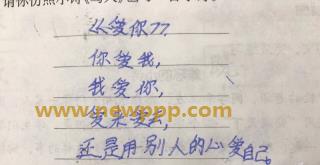 请你仿照小诗
爱你77
你爱我,
我爱你,
www.newppp.com
爱来爱去,
还是用别人的心爱自己。